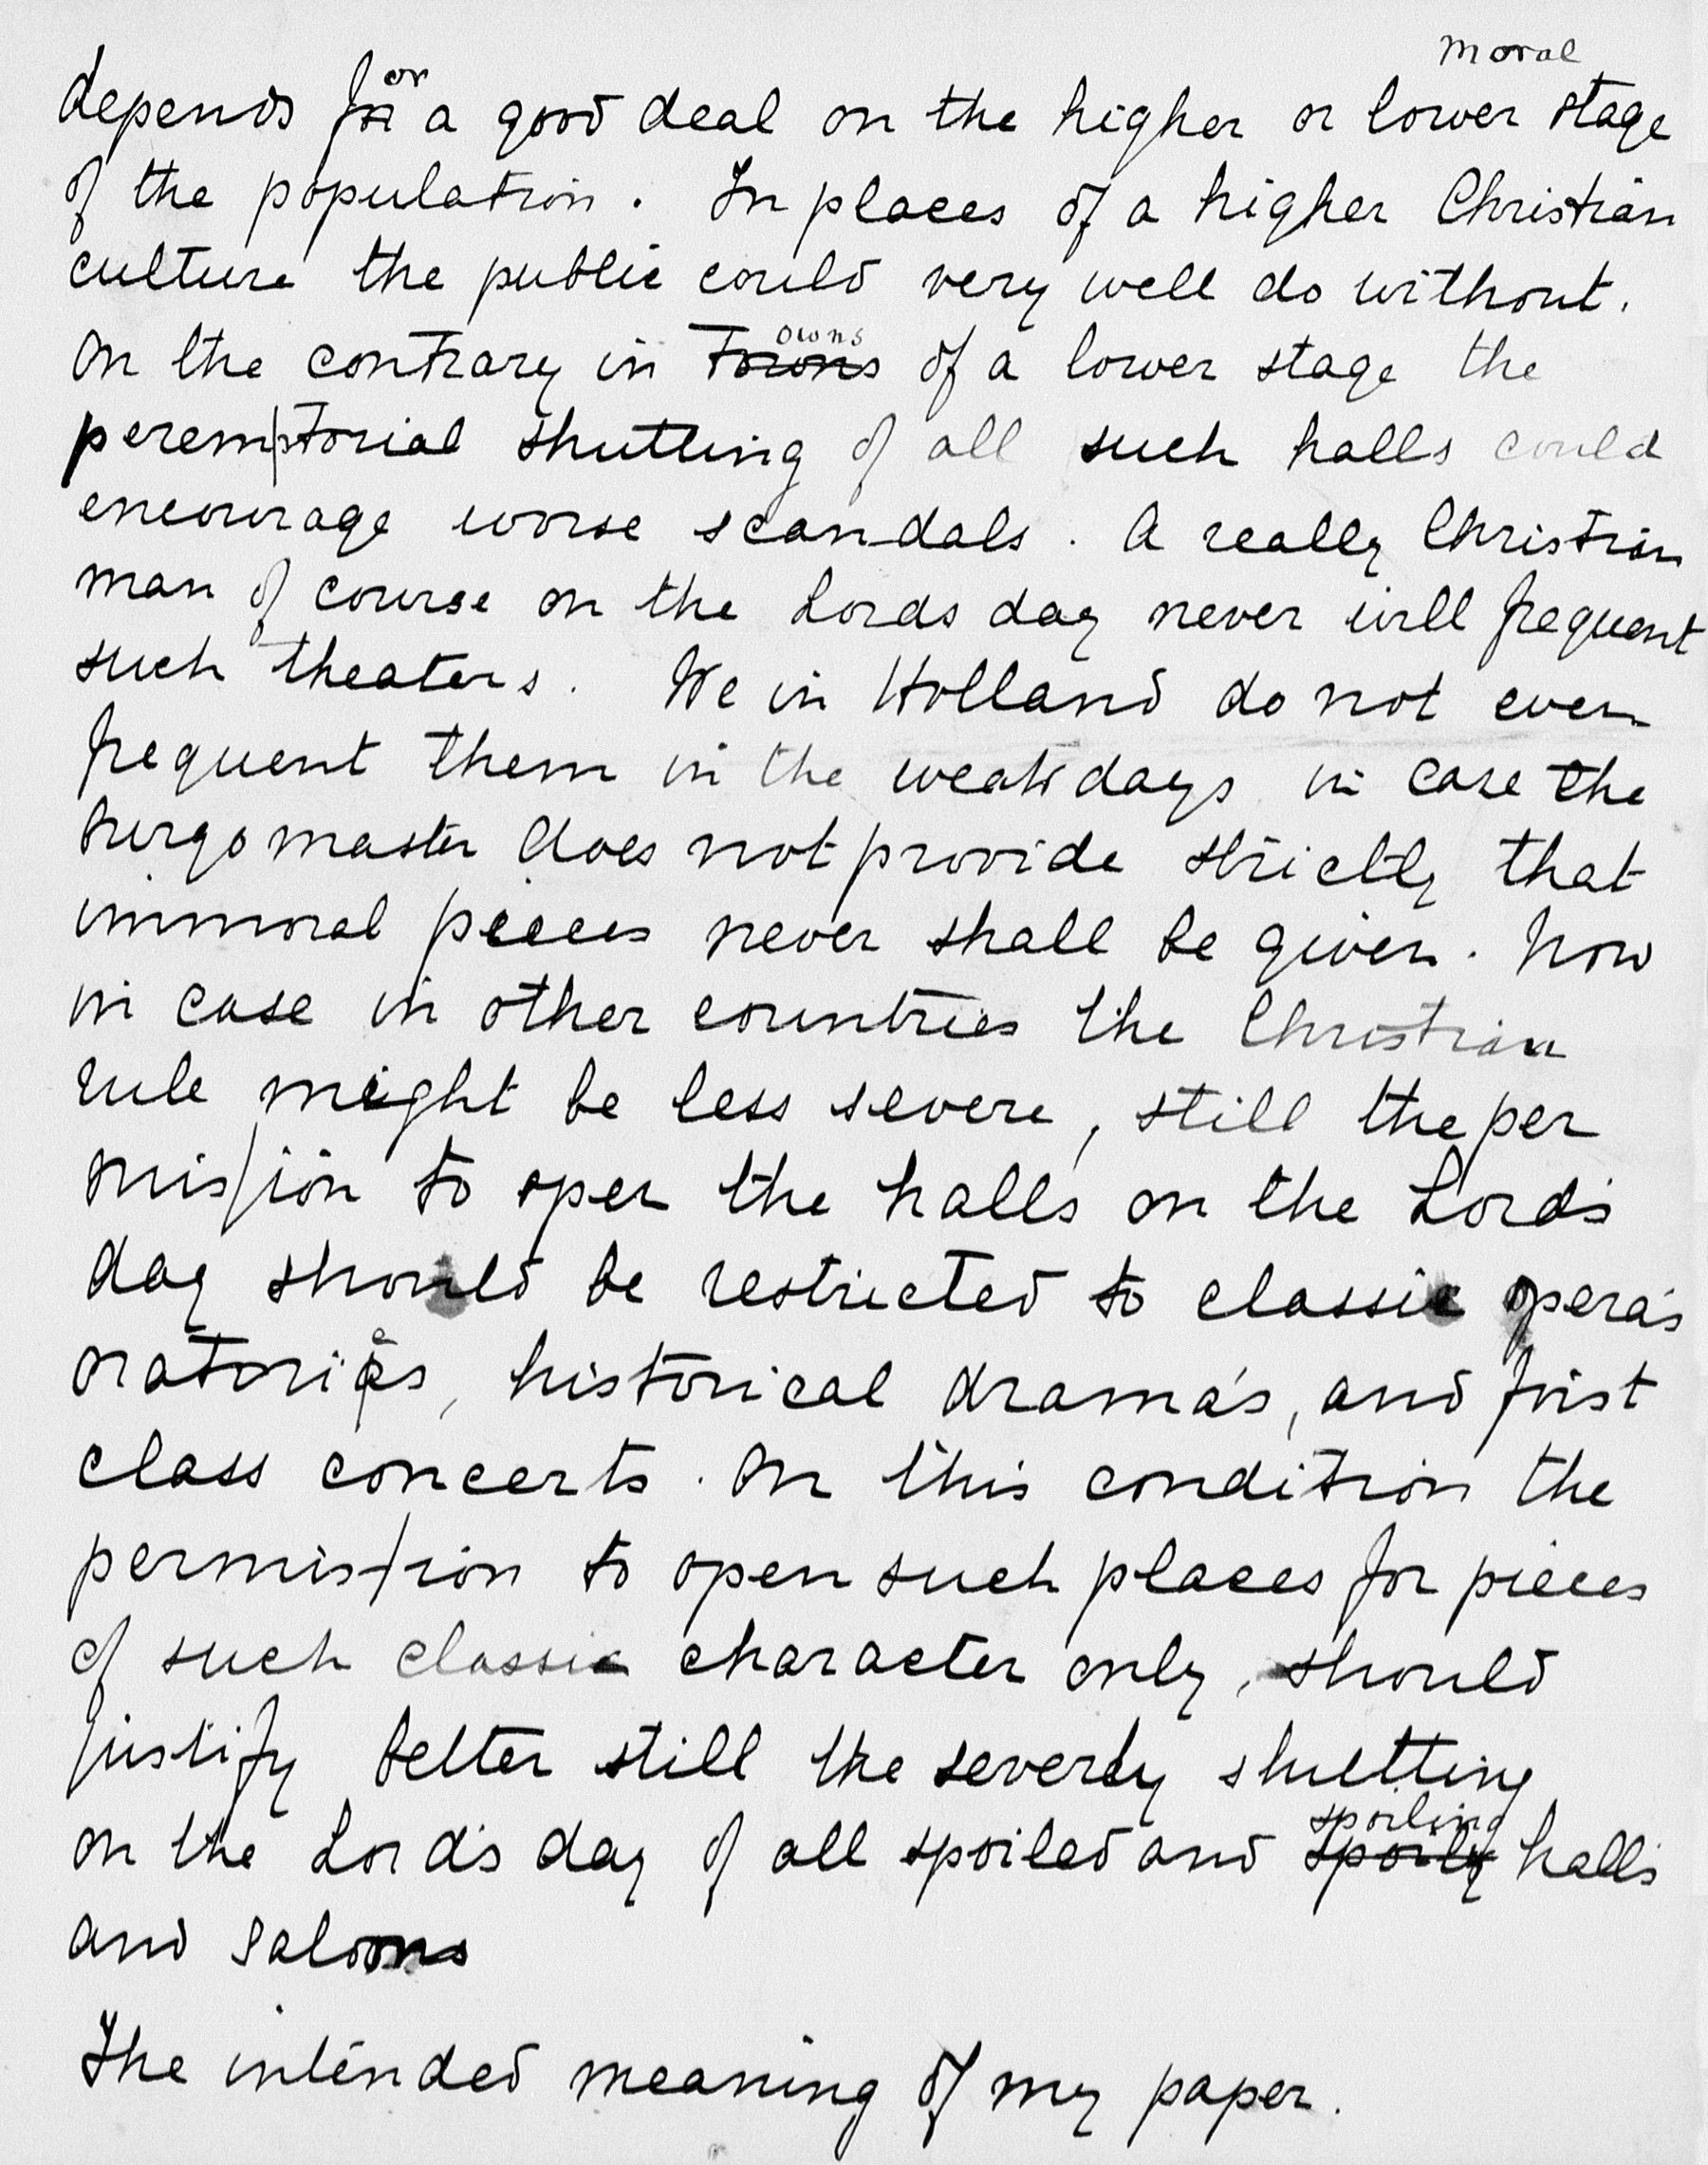 moral
depends for a good deal on the higher or lower stage
of the population. In places of a higher Christian
culture the public could very well do without.
On the contrary in Towns of a lower stage the
peremptorial shutting of all such halls could
encourage worse scandals. A really Christian
man of course on the Lords day never will frequent
such theaters. We in Holland do not even
frequent them in the weakdays in case the
burgomaster does not provide strictly that
immoral pieces never shall be given. Now
in case in other countries the Christian
rule might be less severe, still the per
mission to open the halls on the Lord's
day should be restricted to classic opera's
oratories, historical drama's, and first
class concerts. On this condition the
permission to open such places for pieces
of such classic character only, should
justify better still the severely shutting
spoiling
on the Lord's day of all spoiled and halls
and saloons
The intended meaning of my paper.